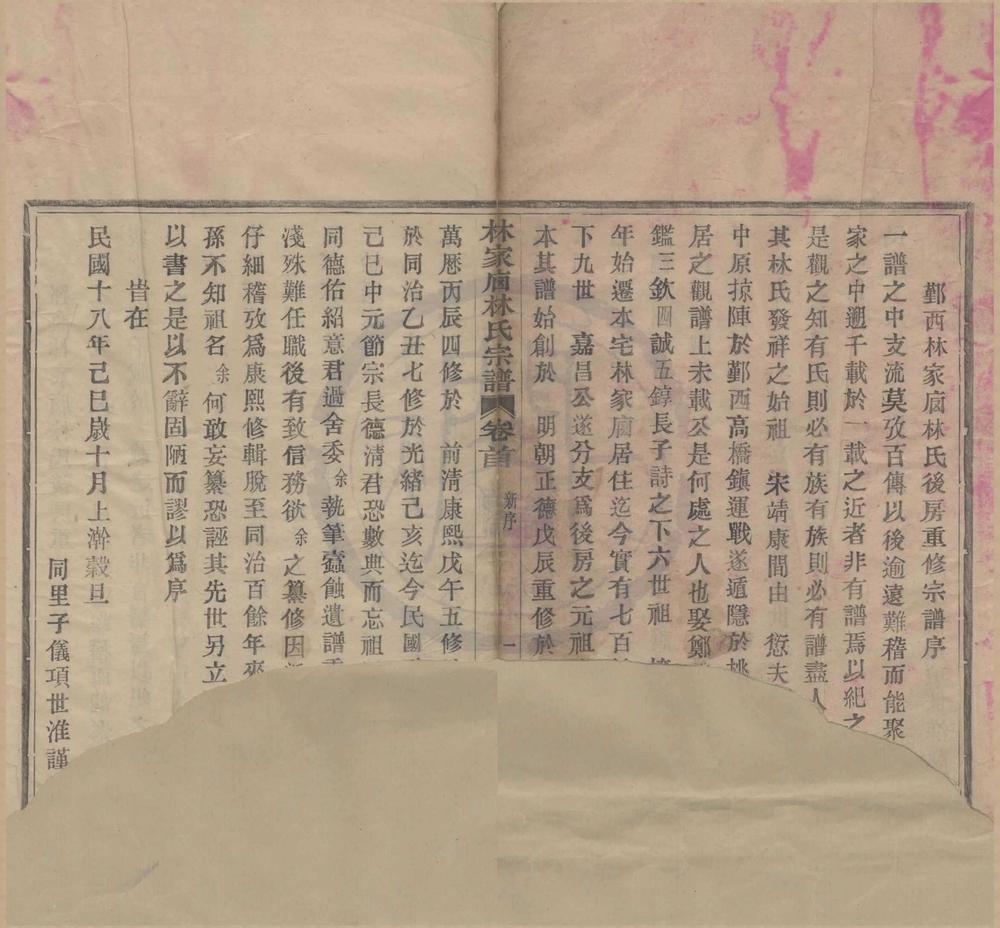 鄞西林家庙林氏後房重修宗譜序
一譜之中支流莫攷百傳以後逾遠難稽而能聚
家之中遡千載於一載之近者非有譜焉以紀之
是觀之知有氏則必有族有族則必有譜盡人
其林氏發祥之始祖 宋靖康間由 愆夫
中原掠陣於鄞西高橋鎮運戰遂遁隱於桃
居之觀譜上未載公是何處之人也娶鄭
鑑三欽四誠五錞長子詩之下六世祖
年始遷本宅林家廟居住迄今實有七百
下九世 嘉昌公遂分支爲後房之元祖
本其譜始創於 明朝正德戊辰重修於
林家庙林氏宗譜 卷首 新序 一
萬厯丙辰四修於 前清康熙戊午五修
於同治乙丑七修於光緒己亥迄今民國
己巳中元節宗長德清君恐數典而忘祖
同德佑紹意君過舍委余執筆蠧蝕遺譜
淺殊難任職後有致信務欲余之纂修因
仔細稽攷爲康熙修輯脫至同治百餘年來
孫不知祖名余何敢妄纂恐誣其先世另立
以書之是以不辭固陋而謬以爲序
旹在
民國十八年己巳歲十月上澣穀旦
同里子儀項世淮謹